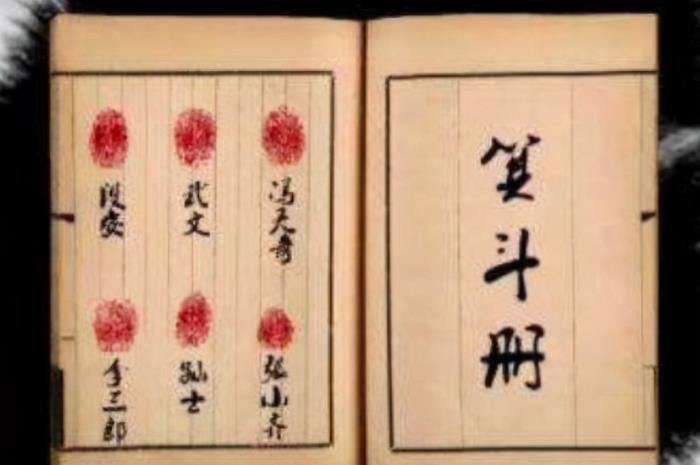 箕斗册
冯天奇
武文
段安
张小齐
孙士
李三郎